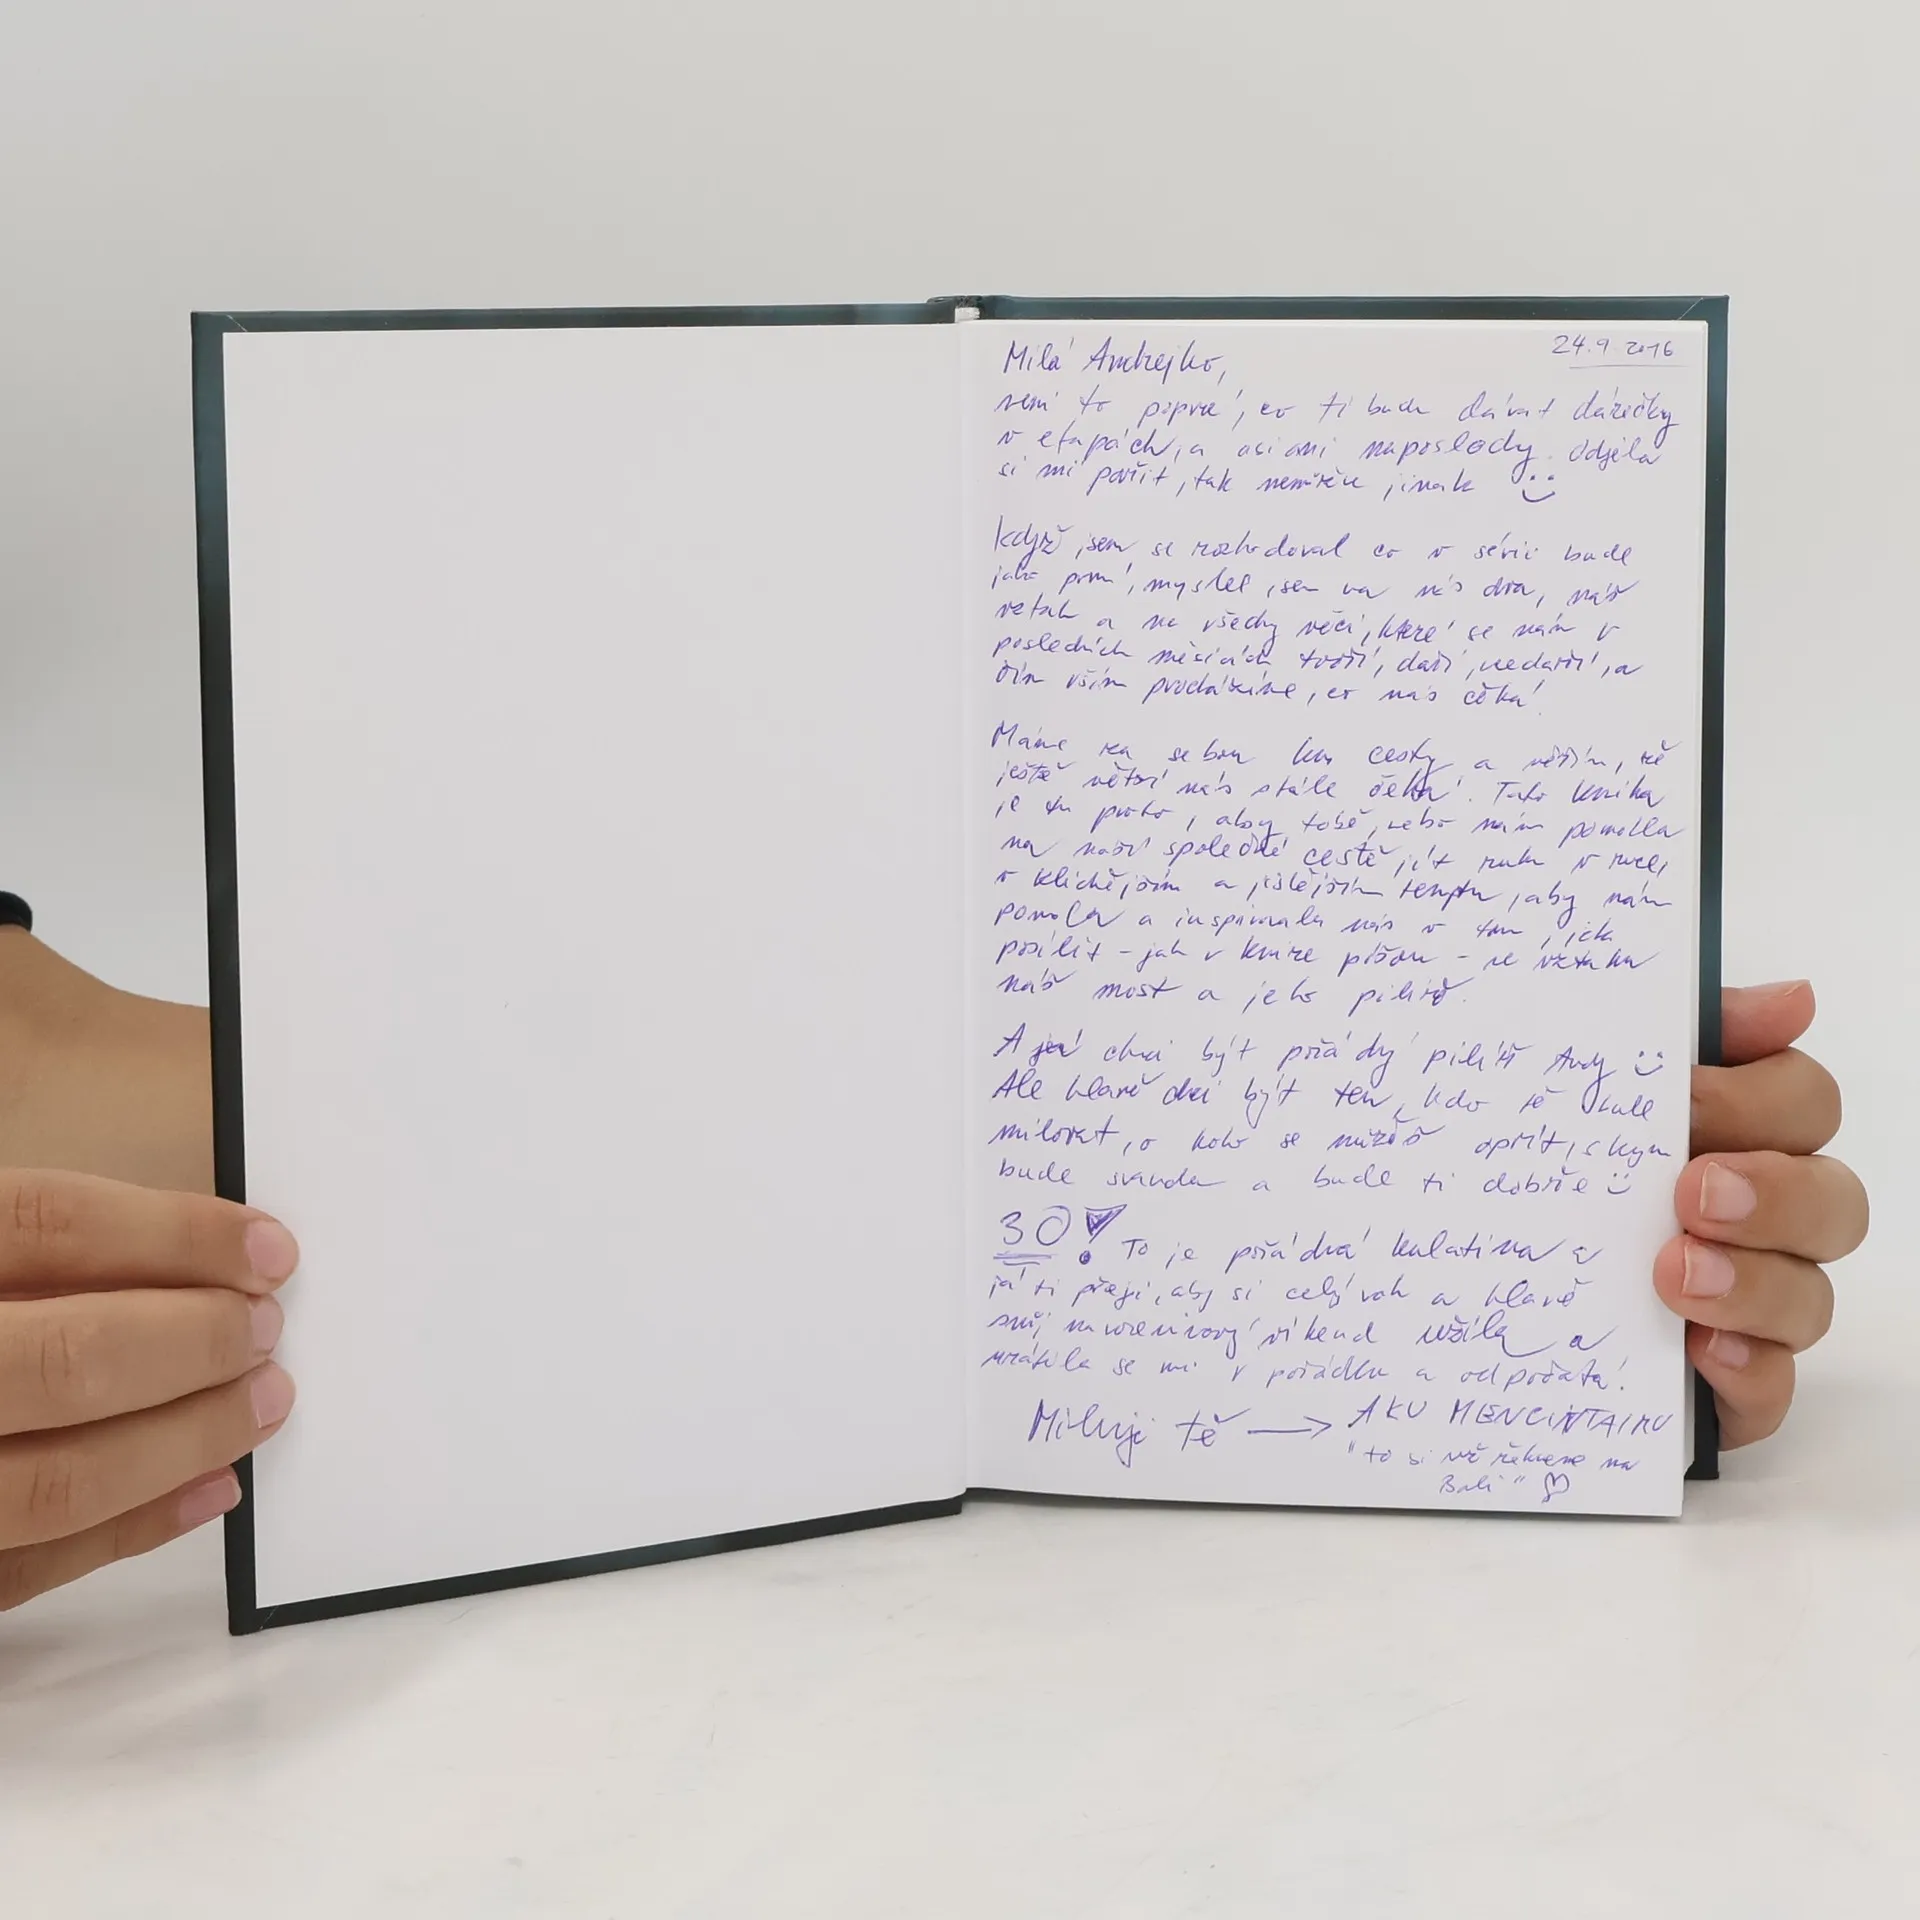 24.9 2016
Milá Andrejko,
není to poprvé, co ti budu dávat dárečky
v etapách, a asi ani naposledy. Odjela
si mi pařit, tak nemůžu jinak
Když jsem se rozhodoval co v sérii bude
jako první, myslel jsem na nás dva, náš
vztah a na všechy věci, které se nám v
posledních měsících tvoří, daří, nedaří, a
čím vším procházíme, co nás čeká!
Máme za sebou km cesty a věřím, že
ještě větší nás stále čeká. Tato kniha
je tu proto, aby tobě, nebo nám pomohla
na naší společné cestě jít ruku v ruce,
v klidnějším a jistějším tempu, aby nám
pomohla a inspirovala nás v tom, jak
posílit - jak v knize píšou - ve vztahu
náš most a jeho pilíře.
A já chci být pořádný pilíř Andy
Ale hlavně chci být ten, kdo tě bude
milovat, o koho se můžeš opřít, s kým
bude sranda a bude ti dobře
30! To je pořádná kulatina a
já ti přeji, aby si celý rok a hlavně
svůj narozeninový víkend užila a
vrátila se mi v pořádku a odpočatá!
Miluji tě → AKU MENCINTAIMU
"to si už řekneme na
Bali" ♡